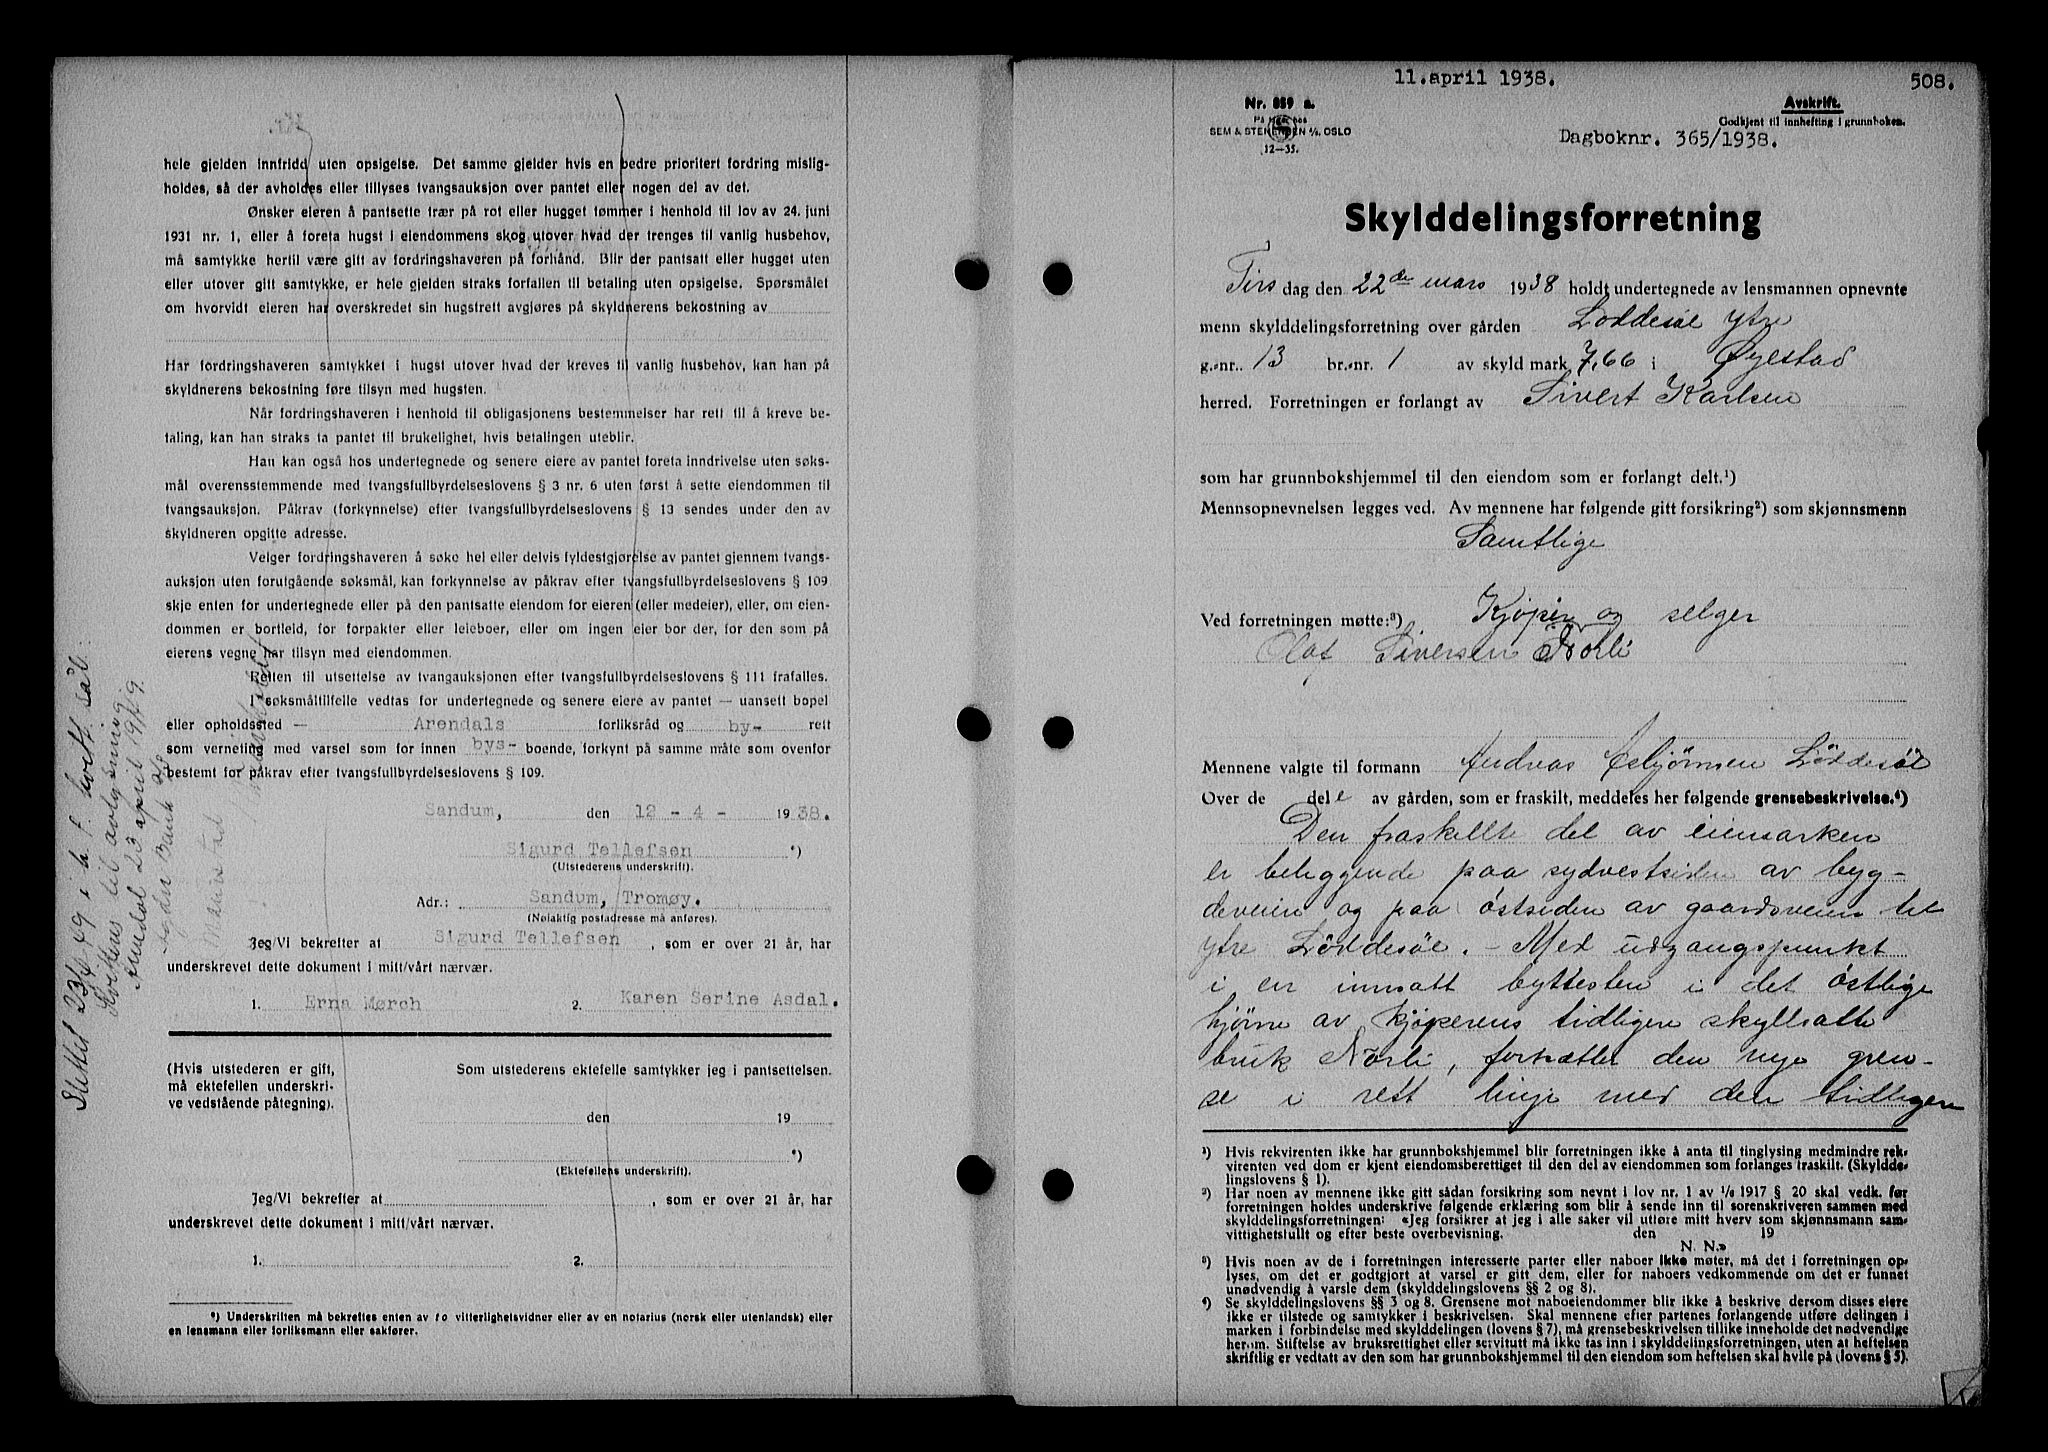 hele gjelden innfridd uten opsigelse. Det samme gjelder hvis en bedre prioritert fordring mislig-
holdes, så der avholdes eller tillyses tvangsauksjon over pantet eller nogen del av det.
Ønsker eieren å pantsette trær på rot eller hugget tømmer i henhold til lov av 24. juni
1931 nr. 1, eller å foreta hugst i eiendommens skog utover hvad der trenges til vanlig husbehov,
må samtykke hertil være gitt av fordringshaveren på forhånd. Blir der pantsatt eller hugget uten
eller utover gitt samtykke, er hele gjelden straks forfallen til betaling uten opsigelse. Spørsmålet
om hvorvidt eieren har overskredet sin hugstrett avgjøres på skyldnerens bekostning av
Har fordringshaveren samtykket i hugst utover hvad der kreves til vanlig husbehov, kan han på
skyldnerens bekostning føre tilsyn med hugsten.
Når fordringshaveren i henhold til obligasjonens bestemmelser har rett til å kreve be-
taling, kan han straks ta pantet til brukelighet, hvis betalingen uteblir.
Han kan også hos undertegnede og senere eiere av pantet foreta inndrivelse uten søks-
mål overensstemmende med tvangsfullbyrdelseslovens § 3 nr. 6 uten først å sette eiendommen til
tvangsauksjon. Påkrav (forkynnelse) efter tvangsfullbyrdelseslovens § 13 sendes under den av
skyldneren opgitte adresse.
Velger fordringshaveren å søke hel eller delvis fyldestgjørelse av pantet gjennem tvangs-
auksjon uten forutgående søksmål, kan forkynnelse av påkrav efter tvangsfullbyrdelseslovens § 109
skje enten for undertegnede eller på den pantsatte eiendom for eieren (eller medeier), eller, om eien-
dommen er bortleid, for forpakter eller leieboer, eller om ingen eier bor der, for den som på
eierens vegne har tilsyn med eiendommen.
Retten til utsettelse av tvangauksjonen efter tvangsfullbyrdelseslovens § 111 frafalles.
I søksmåltilfelle vedtas for undertegnede og senere eiere av pantet — uansett bopel
eller opholdssted — Arendals forliksråd og by- rett
som verneting med varsel som for innen bys- boende, forkynt på samme måte som ovenfor
bestemt for påkrav efter tvangsfullbyrdelseslovens § 109.
Sandum, den 12 - 4 - 1938.
Sigurd Tellefsen *)
(Utstederens underskrift).
Adr.: Sandum, Tromøy.
(Nøiaktig postadresse må anføres).
Jeg/Vi bekrefter at Sigurd Tellefsen, som er over 21 år, har
underskrevet dette dokument i mitt/vårt nærvær.
1. Erna Mørch 2. Karen Serine Asdal.
(Hvis utstederen er gift,
må ektefellen underskri-
ve vedstående påtegning).
Som utstederens ektefelle samtykker jeg i pantsettelsen.
den 19
*)
(Ektefellens underskrift).
Jeg/Vi bekrefter at , som er over 21 år, har
underskrevet dette dokument i mitt/vårt nærvær.
1. 2.
*) Underskriften må bekreftes enten av to vitterlighetsvidner eller av en notarius (norsk eller utenlandsk) eller
en lensmann eller forliksmann eller sakfører.
Slettet 23/4 49 i h. t. kvitt. sål.:
Kvitteres til avlysning
Arendal 23 april 1949.
11.april 1938. 508.
Nr. 859 a.
På lager hos
SEM & STENERSEN A/S, OSLO
12—35.
Avskrift.
Godkjent til innhefting i grunnboken.
Dagboknr. 365/1938.
Skylddelingsforretning
Tirs dag den 22de mars 1938 holdt undertegnede av lensmannen opnevnte
menn skylddelingsforretning over gården Løddesøl ytre
g.-nr. 13 br.-nr. 1 av skyld mark 7,66 i Øyestad
herred. Forretningen er forlangt av Sivert Karlsen
som har grunnbokshjemmel til den eiendom som er forlangt delt.¹)
Mennsopnevnelsen legges ved. Av mennene har følgende gitt forsikring²) som skjønnsmenn
Samtlige
Ved forretningen møtte:³) Kjøper og selger
Olaf Siversen Norli
Mennene valgte til formann Andreas Esbjørnsen Løddesøl
Over de del e av gården, som er fraskilt, meddeles her følgende grensebeskrivelse.⁴)
Den fraskillte del av eiemarken
er beliggende paa sydvestsiden av byg-
deveien og paa østsiden av gaardsveien til
ytre Løddesøl. - Med udgangspunkt
i en innsatt byttesten i det østlige
hjørne av kjøperens tidligere skyllsatte
bruk Norli, fortsætter den nye gren-
se i rett linje med den tidligere
¹) Hvis rekvirenten ikke har grunnbokshjemmel blir forretningen ikke å anta til tinglysing medmindre rek-
virenten ved dom er kjent eiendomsberettiget til den del av eiendommen som forlanges fraskilt. (Skyldde-
lingslovens § 1).
²) Har noen av mennene ikke gitt sådan forsikring som nevnt i lov nr. 1 av 1/6 1917 § 20 skal vedk. før
forretningen holdes underskrive følgende erklæring som blir å sende inn til sorenskriveren sammen med
skylddelingsforretningen: «Jeg forsikrer at jeg i alle saker vil utføre mitt hverv som skjønnsmann sam-
vittighetsfullt og efter beste overbevisning. den 19
N. N.»
³) Hvis noen av de i forretningen interesserte parter eller naboer ikke møter, må det i forretningen op-
lyses, om det er godtgjort at varsel er gitt dem, eller for naboers vedkommende om det er funnet
unødvendig å varsle dem (skylddelingslovens §§ 2 og 8).
⁴) Se skylddelingslovens §§ 3 og 8. Grensene mot naboeiendommer blir ikke å beskrive dersom disses eiere
ikke er tilstede og samtykker i beskrivelsen. Skal mennene efter partenes forlangende utføre delingen i
marken i forbindelse med skylddelingen (lovens § 7), må grensebeskrivelsen tillike inneholde det nødvendige
herom. Stiftelse av bruksrettighet eller servitutt må ikke tas inn i skylddelingsforretningen, uten at heftelsen
skriftlig er vedtatt av den som har grunnbokshjemmel til den eiendom som heftelsen skal hvile på (lovens § 5).